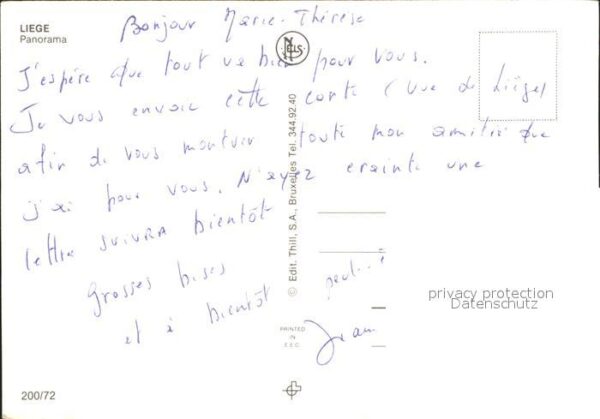 LIEGE
Panorama
Bonjour Marie-Thérèse
J'espère que tout va bien pour vous.
Je vous envoie cette carte (vue de Liège)
afin de vous montrer toute mon amitié que
j'ai pour vous. N'ayez crainte une
lettre suivra bientôt
Grosses bises
et à bientôt
Jean
NELS
© Edit. Thill, S.A., Bruxelles Tel. 344.92.40
PRINTED
IN
E.E.C.
privacy protection
Datenschutz
200/72